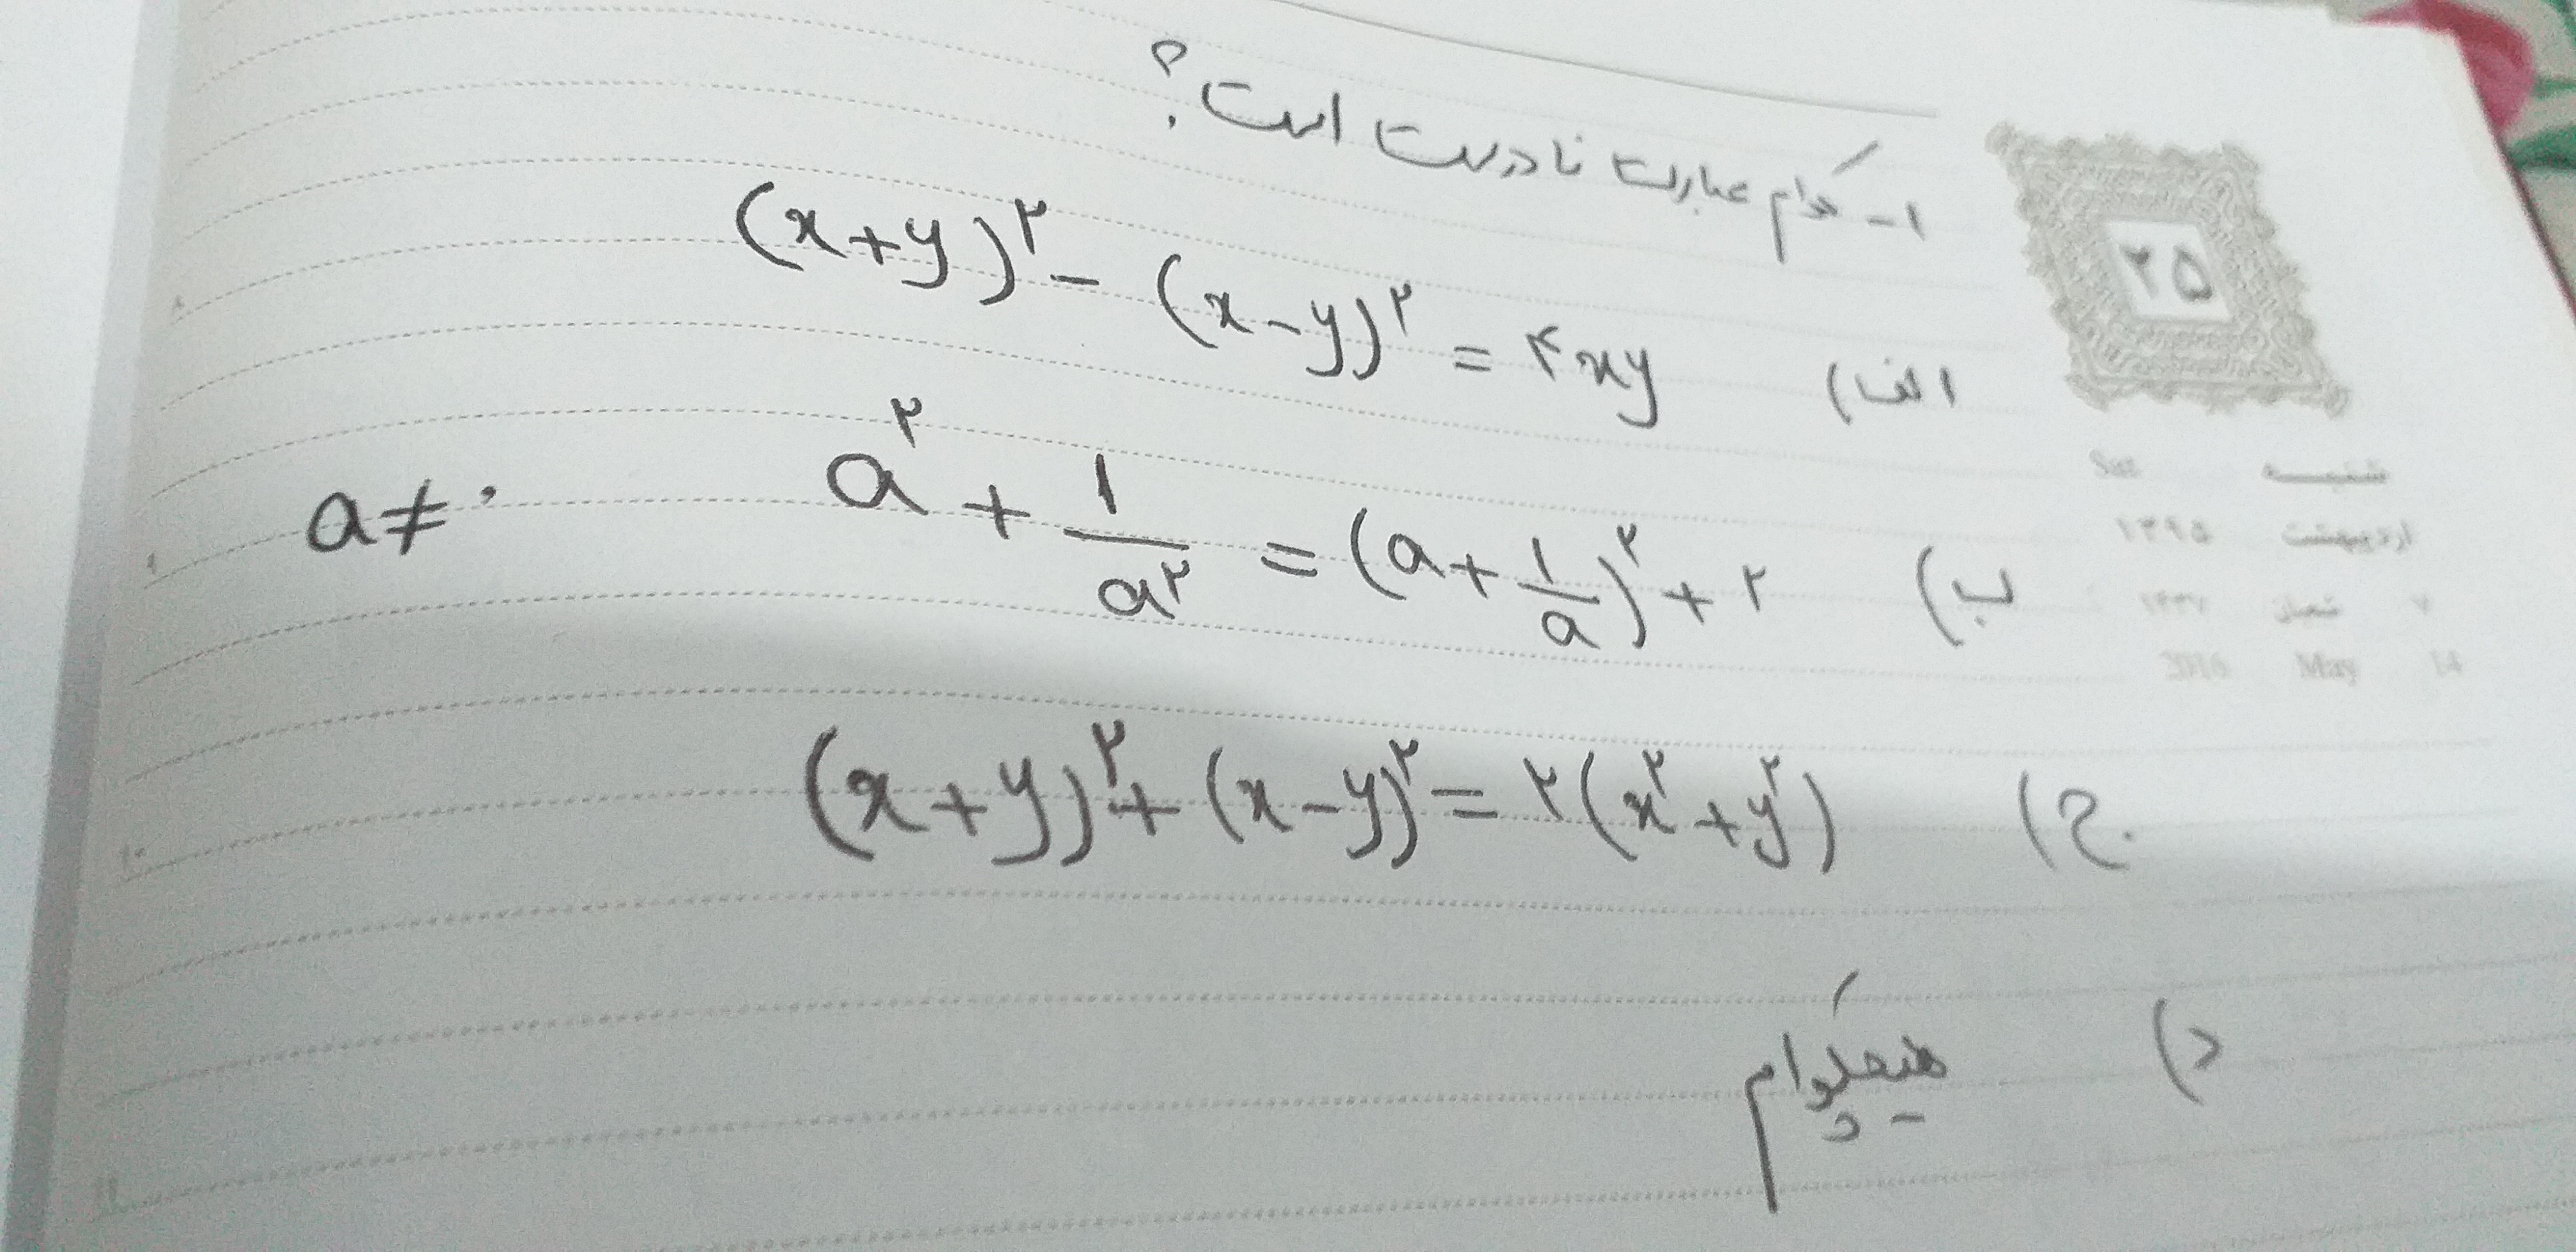 ۱- کدام عبارت نادرست است؟
الف) (x+y)^۲ - (x-y)^۲ = ۴xy
ب) a^۲ + ۱/a^۲ = (a + ۱/a)^۲ + ۲ a ≠ ۰
ج) (x+y)^۲ + (x-y)^۲ = ۲(x^۲+y^۲)
د) هیچکدام
۲۵
شنبه Sat
اردیبهشت ۱۳۹۵
۷ شعبان ۱۴۳۷
14 May 2016